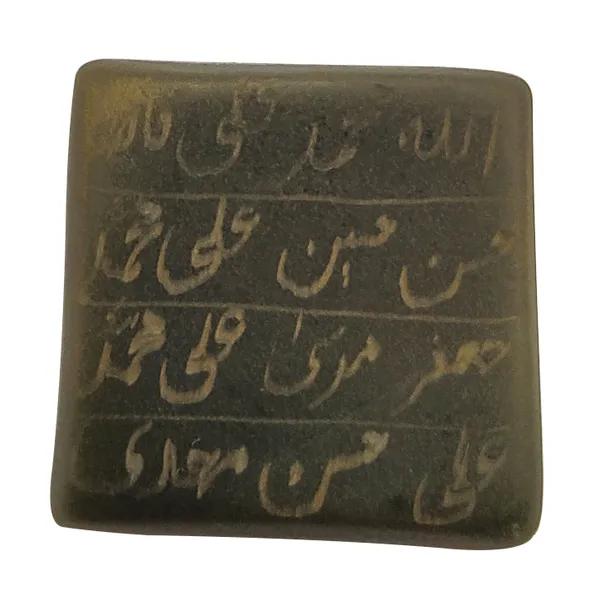 الله محمد علی فاطمه
حسن حسین علی محمد
جعفر موسی علی محمد
علی حسن مهدی